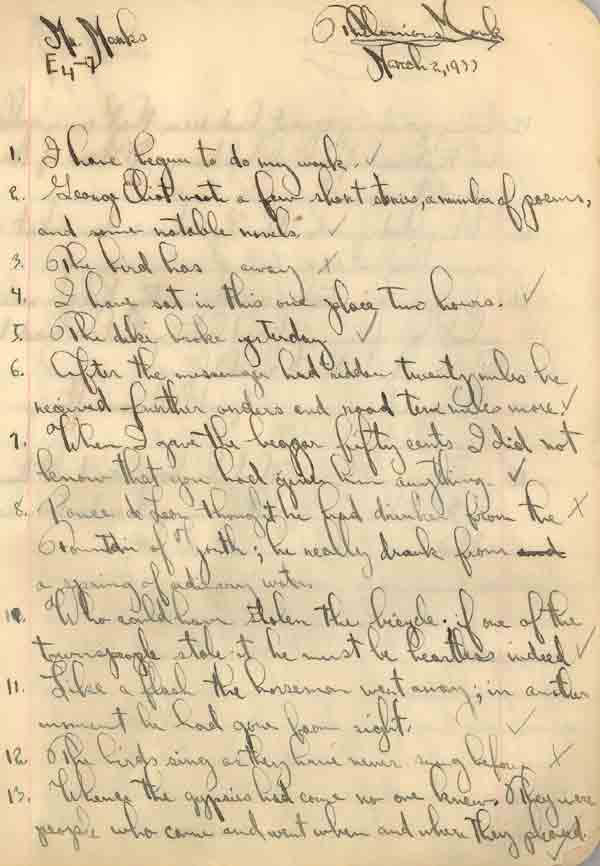 Mr. Monks
E4-7
Thelonious Monk
March 2, 1933
1. I have begun to do my work. ✓
2. George Eliot wrote a few short stories, a number of poems,
and some notable novels ✓
3. The bird has away x
4. I have sat in this one place two hours. ✓
5. The dike broke yesterday ✓
6. After the messenger had ridden twenty miles he
received further orders and road ten miles more. ✓
7. When I gave the beggar fifty cents I did not
know that you had given him anything. ✓
8. Ponce de Leon thought he had drunken from the x
Fountain of Youth; he really drank from and
a spring of ordinary water
10. Who could have stolen the bicycle; if one of the
townspeople stole it he must be heartless indeed ✓
11. Like a flash the horseman went away; in another
moment he had gone from sight. ✓
12. The birds sing as they have never sung before x
13. Whence the gypsies had come no one knew. They were
people who came and went when and where they pleased. ✓